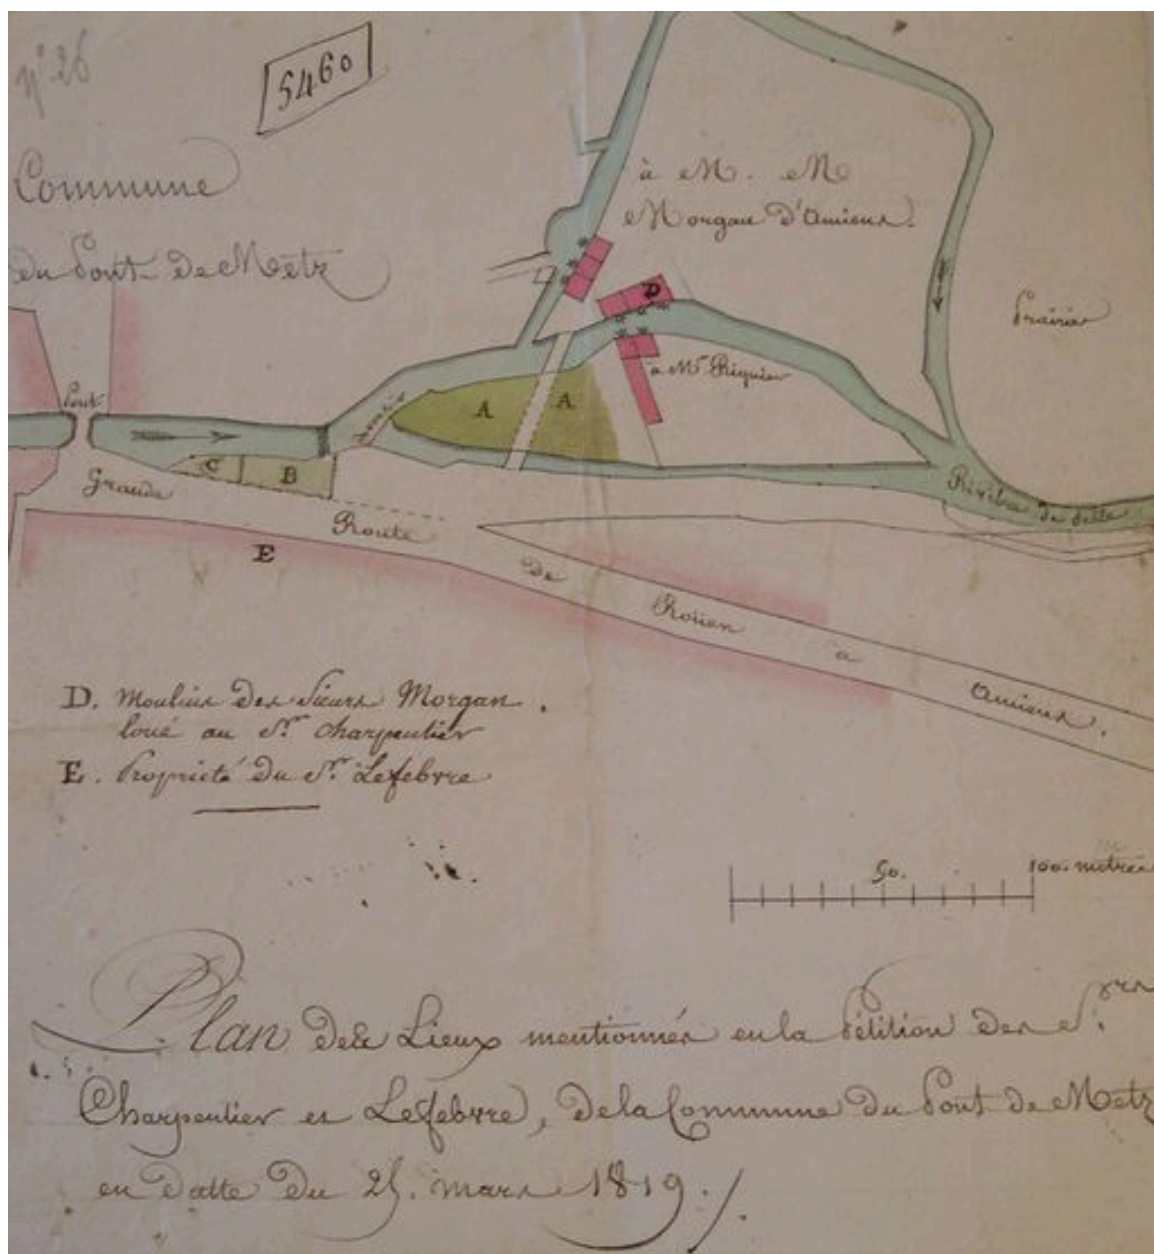 n° 26
5460
Commune
du Pont de Metz
à M. M
Morgan d'Amiens.
Prairie
D
à Mr. Riquier
Pont
A
A
C
B
Grande
Route
de
Rouen
à
Amiens.
Rivière de Selle
E
D. Moulins des Sieurs Morgan.
loué au Sr. Charpentier
E. Propriété du Sr. Lefebvre
50.
100. mètres
Plan des Lieux mentionnés en la Pétition des Srs.
Charpentier et Lefebvre, de la Commune du Pont de Metz
en datte du 25. mars 1819./.